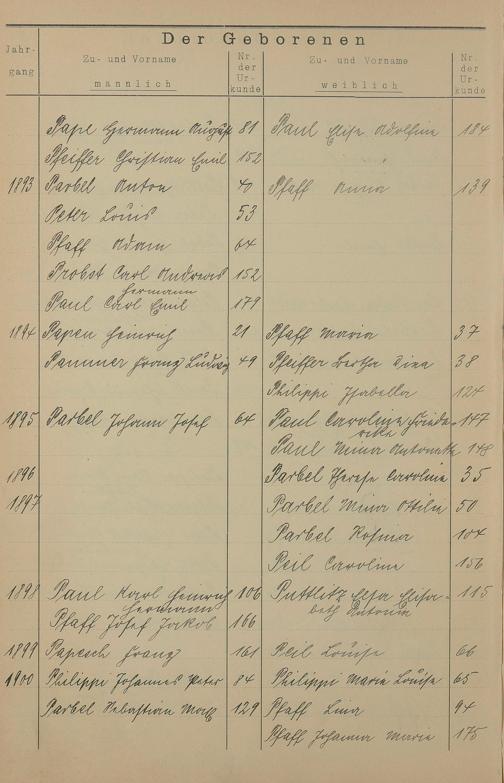 Der Geborenen
Jahr-
gang
Zu- und Vorname
männlich
Nr.
der
Ur-
kunde
Zu- und Vorname
weiblich
Nr.
der
Ur-
kunde
Pape Hermann August 81 Paul Elise Adolfine 184
Pfeiffer Christian Emil 152
1893 Parbel Anton 40 Pfaff Anna 139
Peter Louis 53
Pfaff Adam 64
Probst Carl Andreas 152
Hermann
Paul Carl Emil 179
1894 Papen Heinrich 21 Pfaff Maria 37
Franz Ludwig 49 Pfeiffer Bertha Dina 38
Philippi Isabella 124
1895 Parbel Johann Josef 64 Paul Caroline Friede- 147
rike
Paul Mina Antonette 148
1896 Parbel Therese Caroline 35
1897 Parbel Mina Ottilie 50
Parbel Rosina 104
Peil Caroline 156
1898 Paul Karl Heinrich 106 Puttlitz Elsa Elisa- 115
Hermann beth Antonia
Pfaff Josef Jakob 166
1899 Papesch Franz 161 Peil Louise 66
1900 Philippi Johannes Peter 84 Philippi Marie Louise 65
Parbel Sebastian Max 129 Pfaff Lina 94
Pfaff Johanna Marie 175